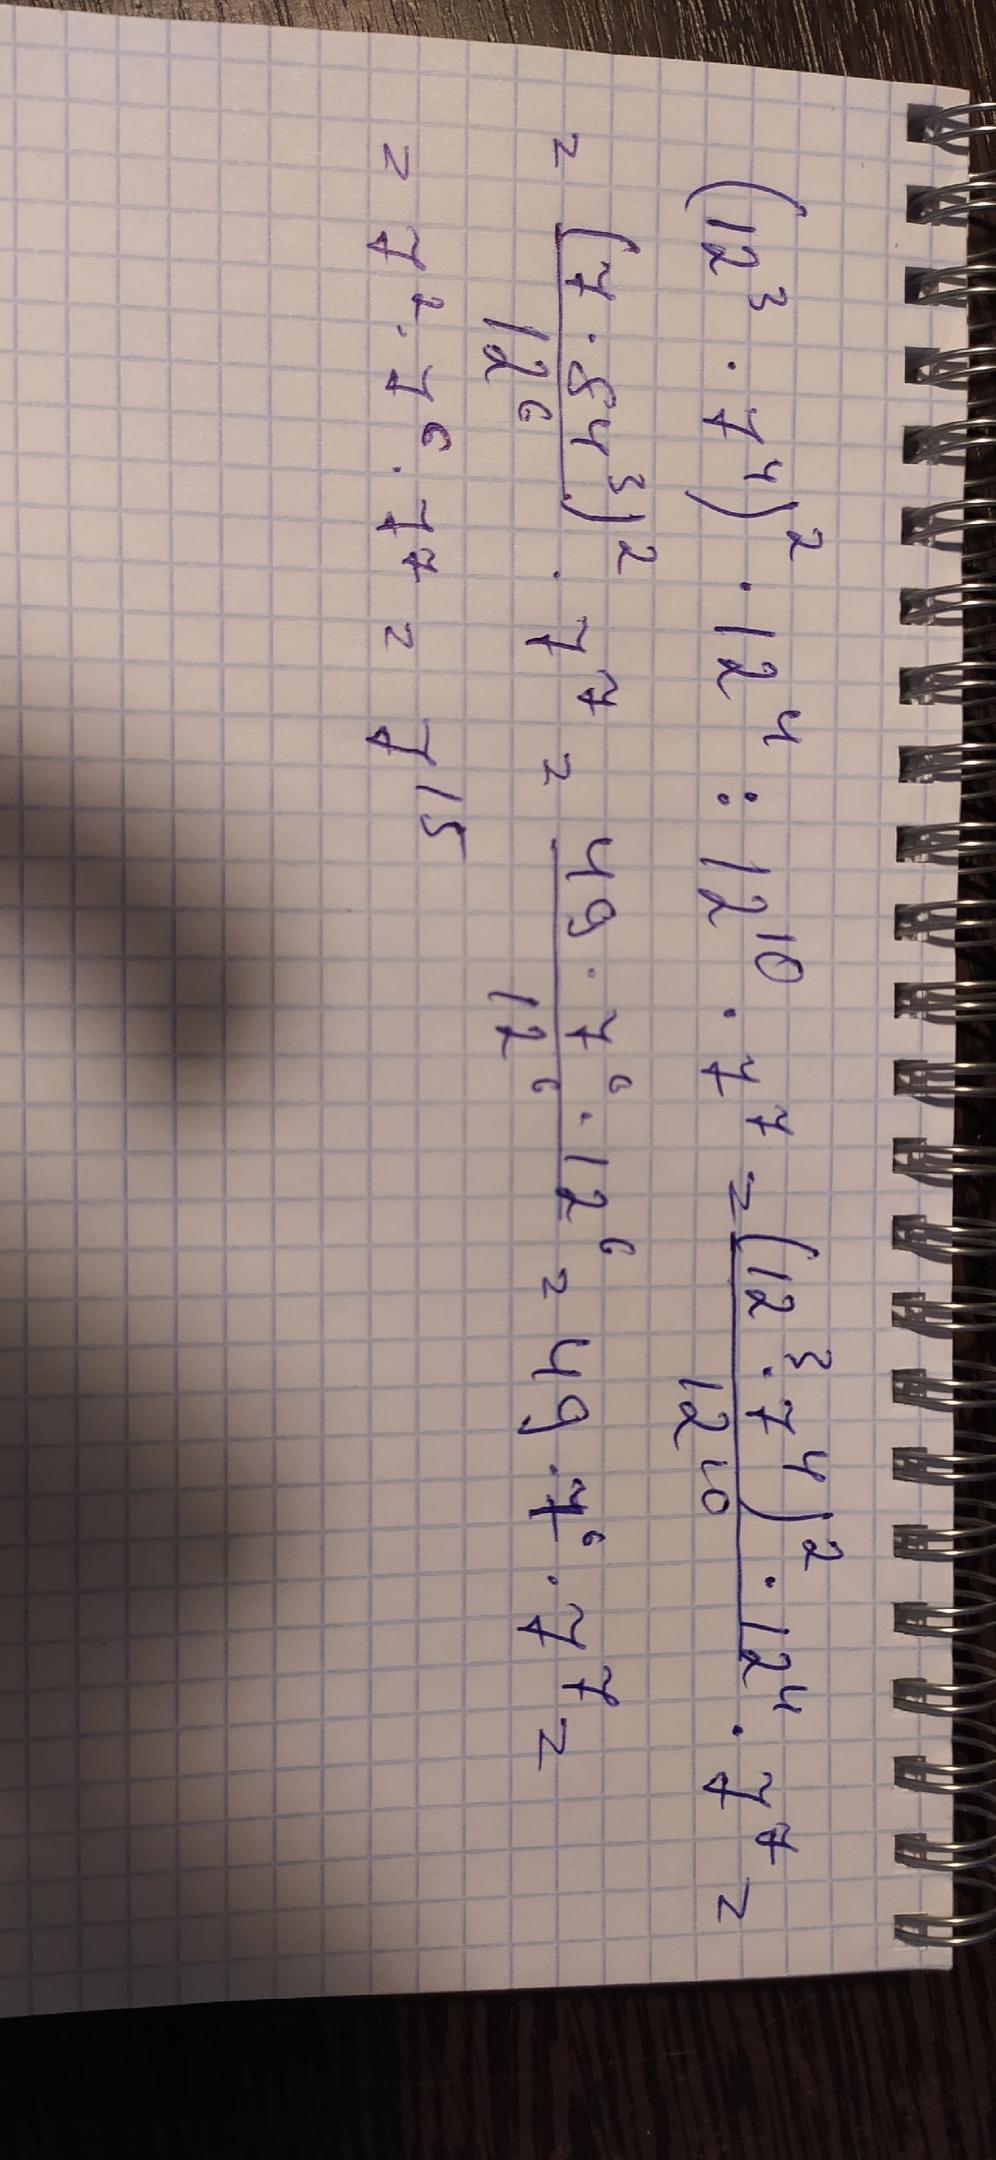 (12³ · 7⁴)² · 12⁴ : 12¹⁰ · 7⁷ = (12³ · 7⁴)² · 12⁴ / 12¹⁰ · 7⁷ =
= (7 · 84³)² / 12⁶ · 7⁷ = 49 · 7⁶ · 12⁶ / 12⁶ = 49 · 7⁶ · 7⁷ =
= 7² · 7⁶ · 7⁷ = 7¹⁵